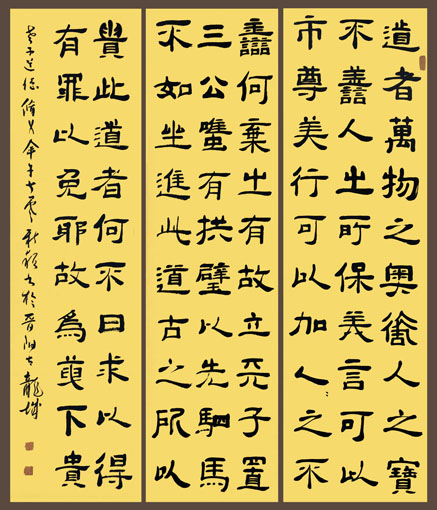 道者萬物之奧善人之寶
不善人之所保美言可以
市尊美行可以加人之不
善何棄之有故立天子置
三公雖有拱璧以先駟馬
不如坐進此道古之所以
貴此道者何不曰求以得
有罪以免耶故為天下貴
老子道德 於晋阳 龍城